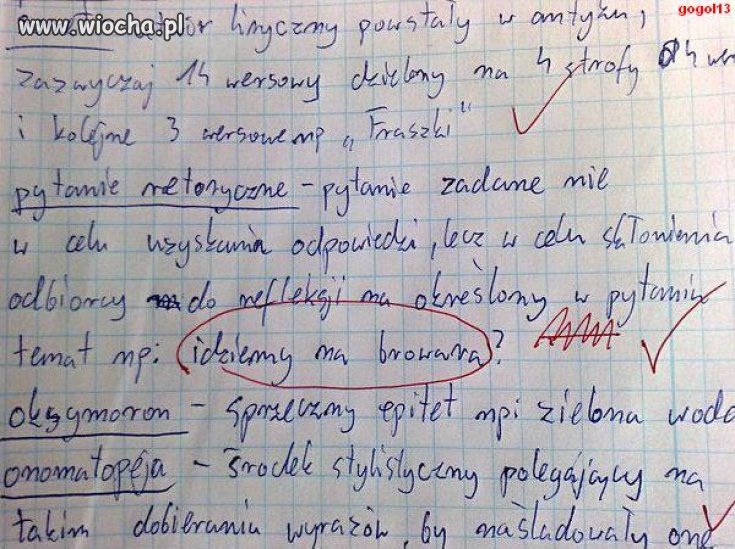 www.wiocha.pl
gogol13
liryczny powstały w antyku,
zazwyczaj 14 wersowy dzielony na 4 strofy 4 we
i kolejne 3 wersowe np „Fraszki"
pytanie retoryczne - pytanie zadane nie
w celu uzyskania odpowiedzi, lecz w celu skłonienia
odbiorcy do refleksji na określony w pytaniu
temat np: idziemy na browara?
oksymoron - sprzeczny epitet np: zielona woda
onomatopeja - środek stylistyczny polegający na
takim dobieraniu wyrazów, by naśladowały one